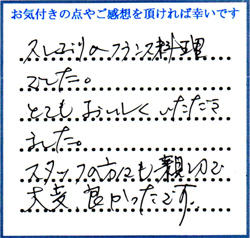 お気付きの点やご感想を頂ければ幸いです
久しぶりのフランス料理
でした。
とてもおいしくいただき
ました。
スタッフの方にも親切で
大変、良かったです。